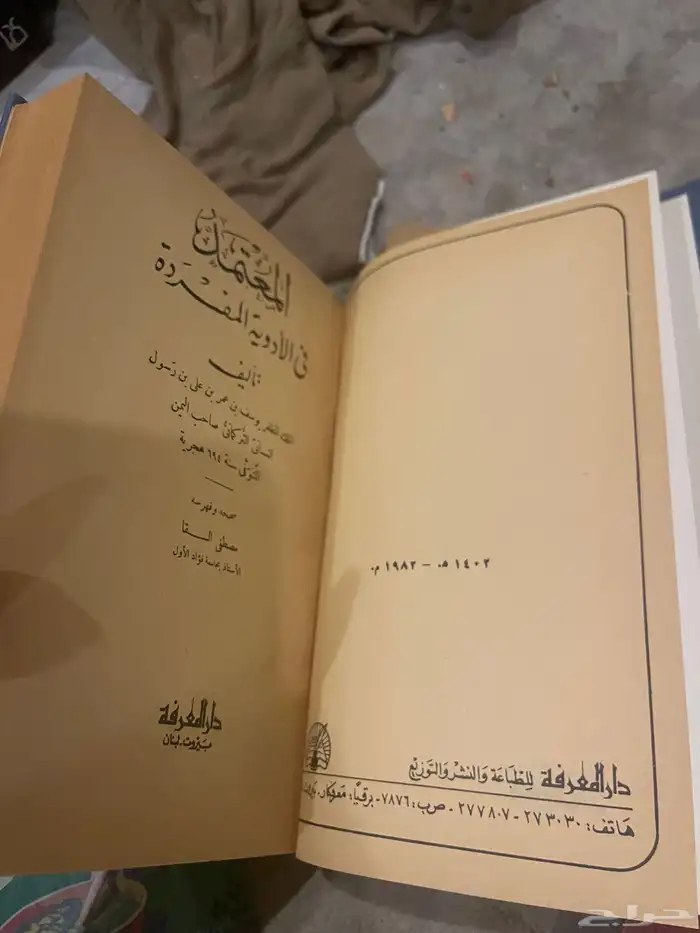 المعتمد
في الأدوية المفردة
تأليف
الملك المظفر يوسف بن عمر بن علي بن رسول
الغساني التركماني صاحب اليمن
المتوفى سنة ٦٩٤ هجرية
صححه وفهرسه
مصطفى السقا
الأستاذ بجامعة فؤاد الأول
دار المعرفة
بيروت - لبنان
١٤٠٢ هـ - ١٩٨٢ م.
دار المعرفة للطباعة والنشر والتوزيع
هاتف: ٢٧٣٠٣٠ - ٢٧٧٨٠٧ - ص.ب: ٧٨٧٦ - برقياً: معرفكار
حراج